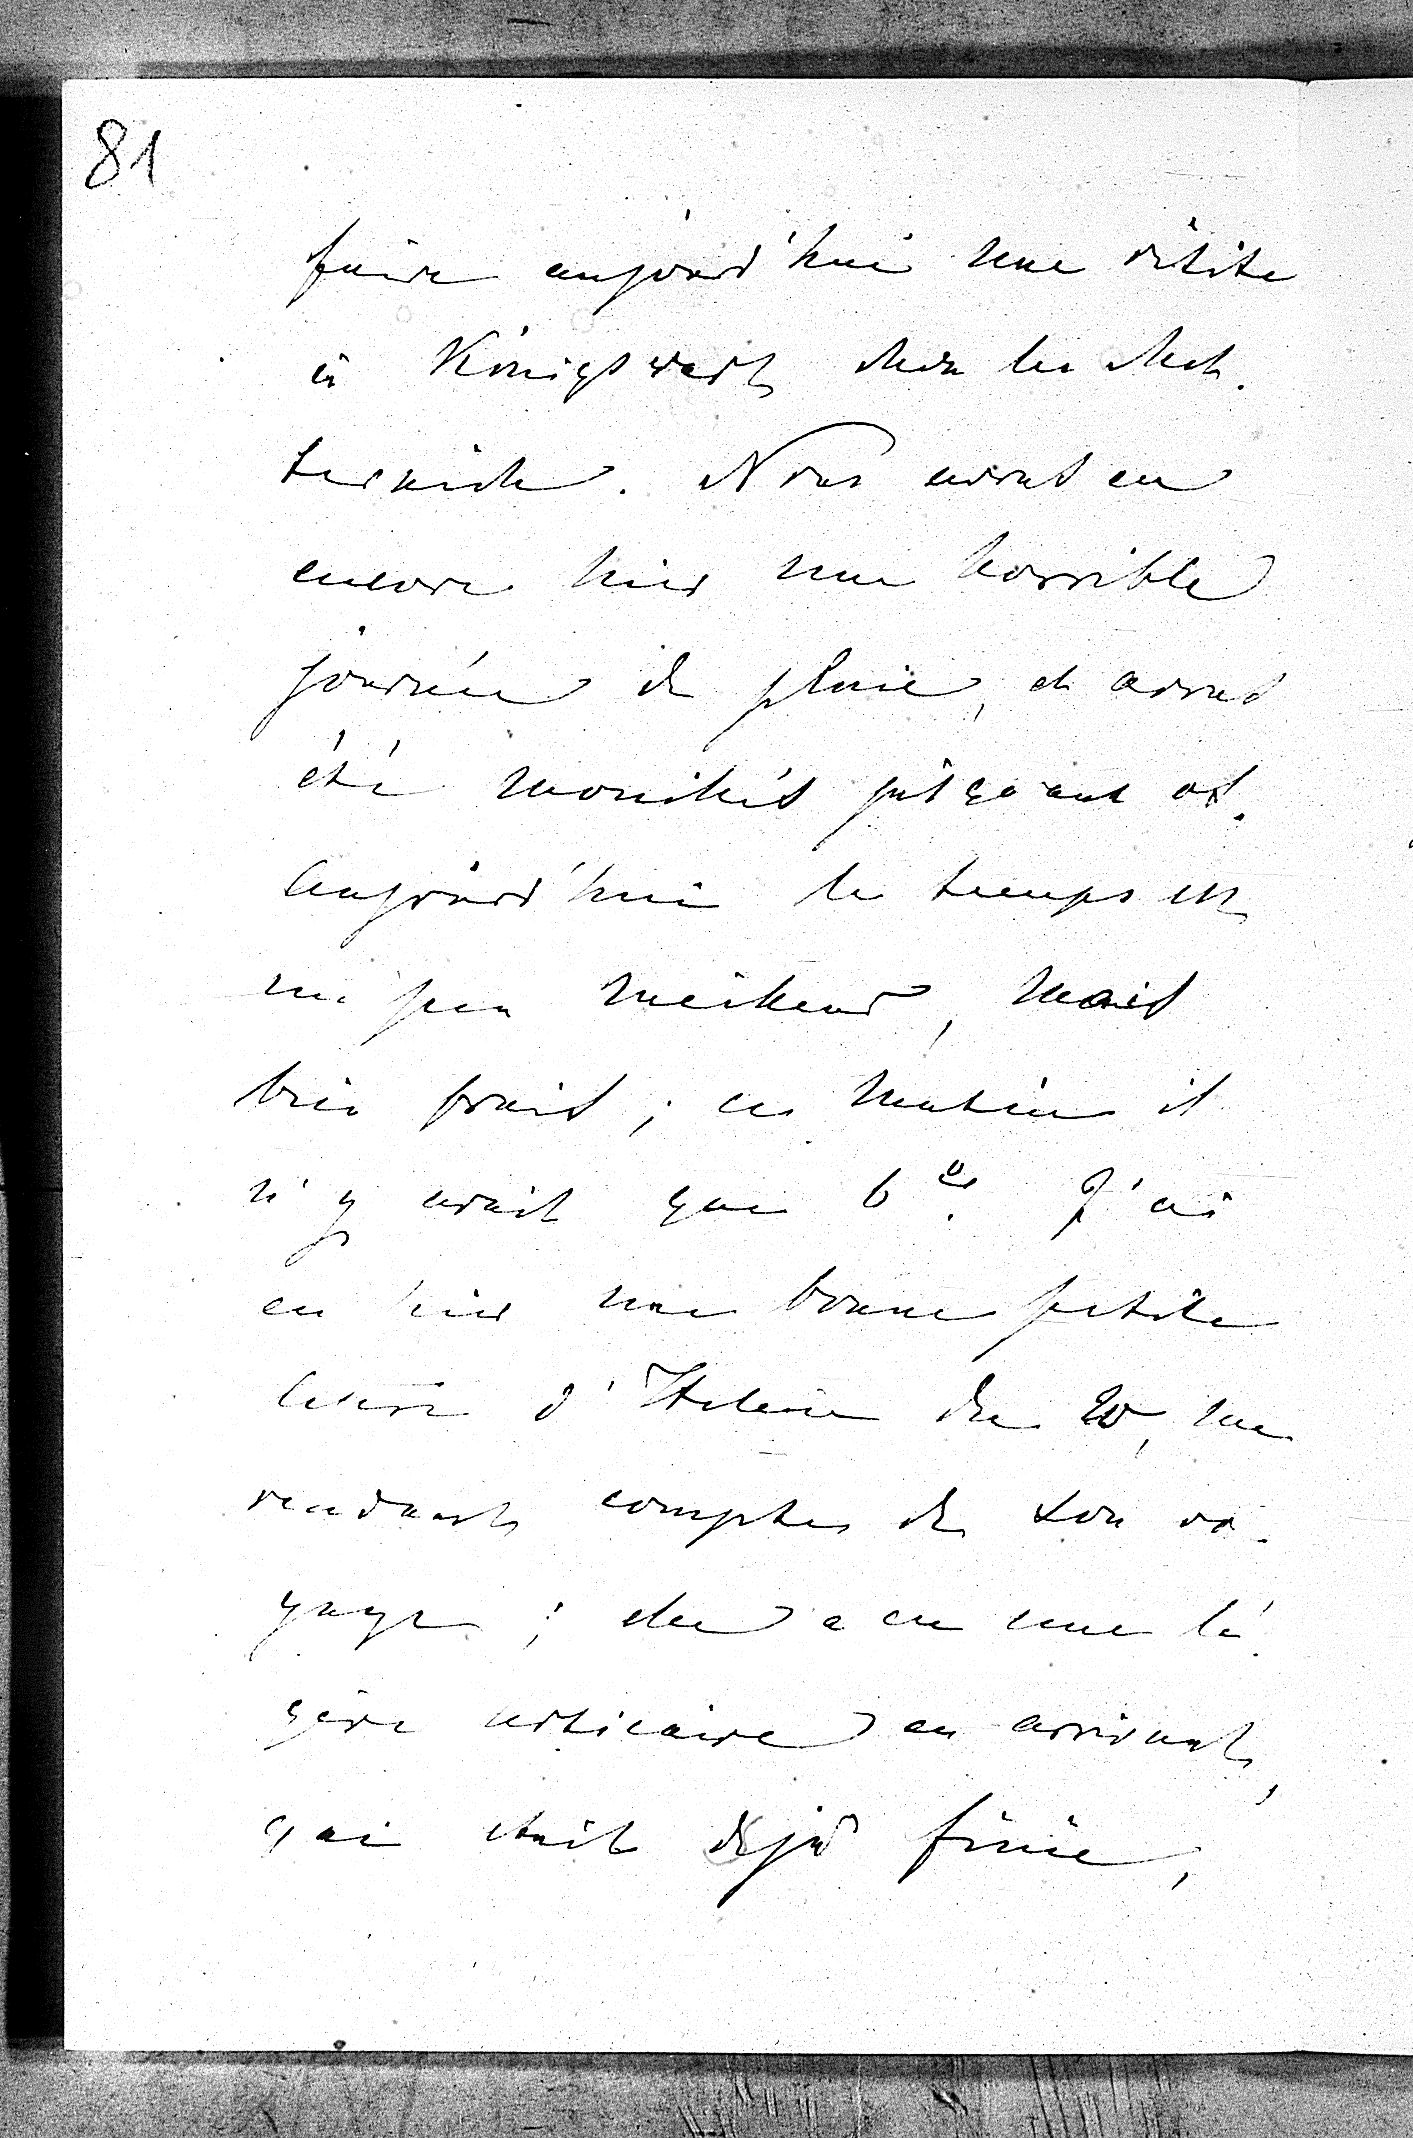 81
faire aujourd'hui une visite
à Königswart chez les Met.
ternich. Nous avons eu
encore hier une horrible
journée de pluie, et avons
été mouillés jusqu'aux os.
Aujourd'hui le temps est
un peu meilleur, mais
bien frais; ce matin il
n'y avait que 6°. J'ai
eu hier une bonne petite
lettre d'Helene du 20, me
rendant compte de son vo-
yage; elle a eu une lé-
gère urticaire en arrivant,
qui était déjà finie,